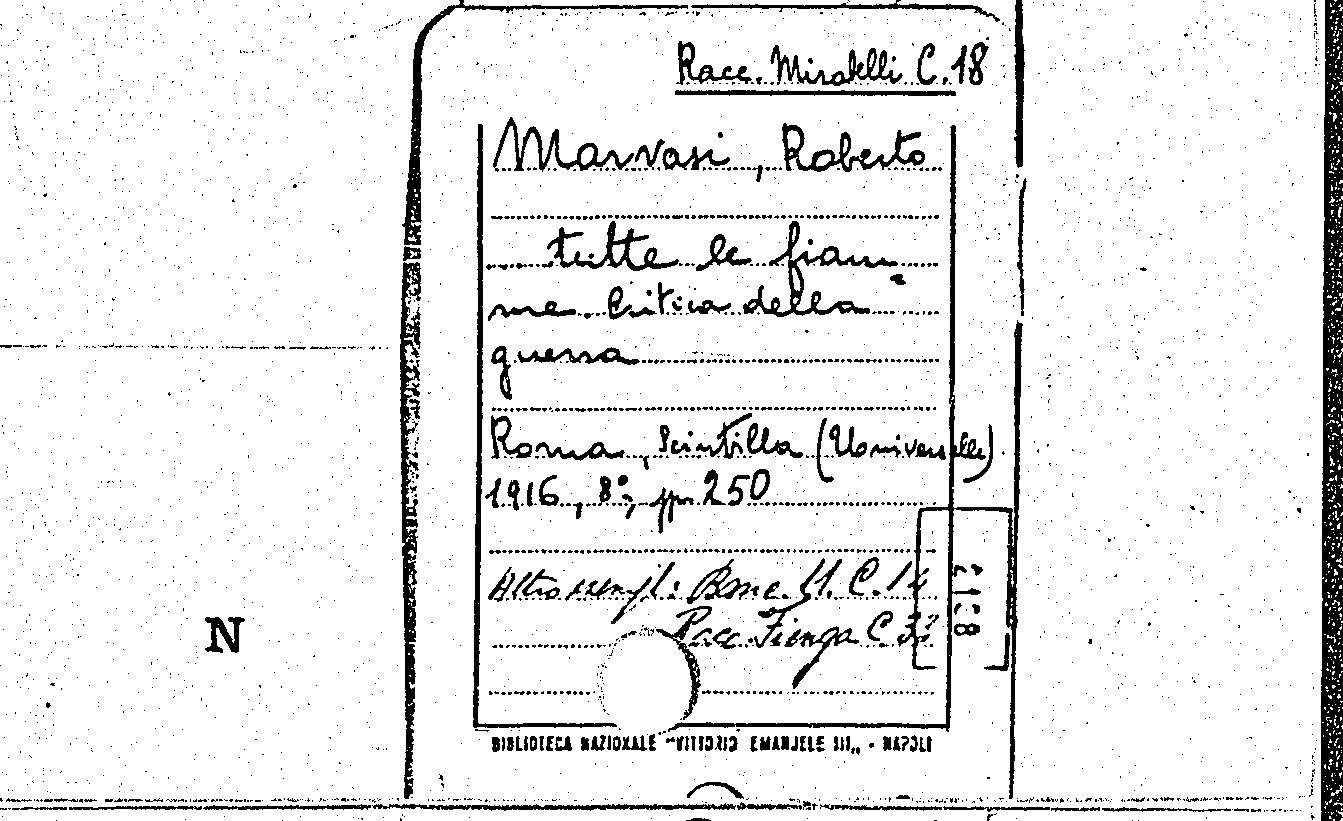 Racc. Mirabelli C.18
Marvasi, Roberto
... tutte le fiam=
me. Critica della
guerra
Roma, Scintilla (Universelle)
1916, 8°, pp. 250
Altro esempl:
Racc. Fienga C.
2138
N
BIBLIOTECA NAZIONALE "VITTORIO EMANUELE III„ - NAPOLI